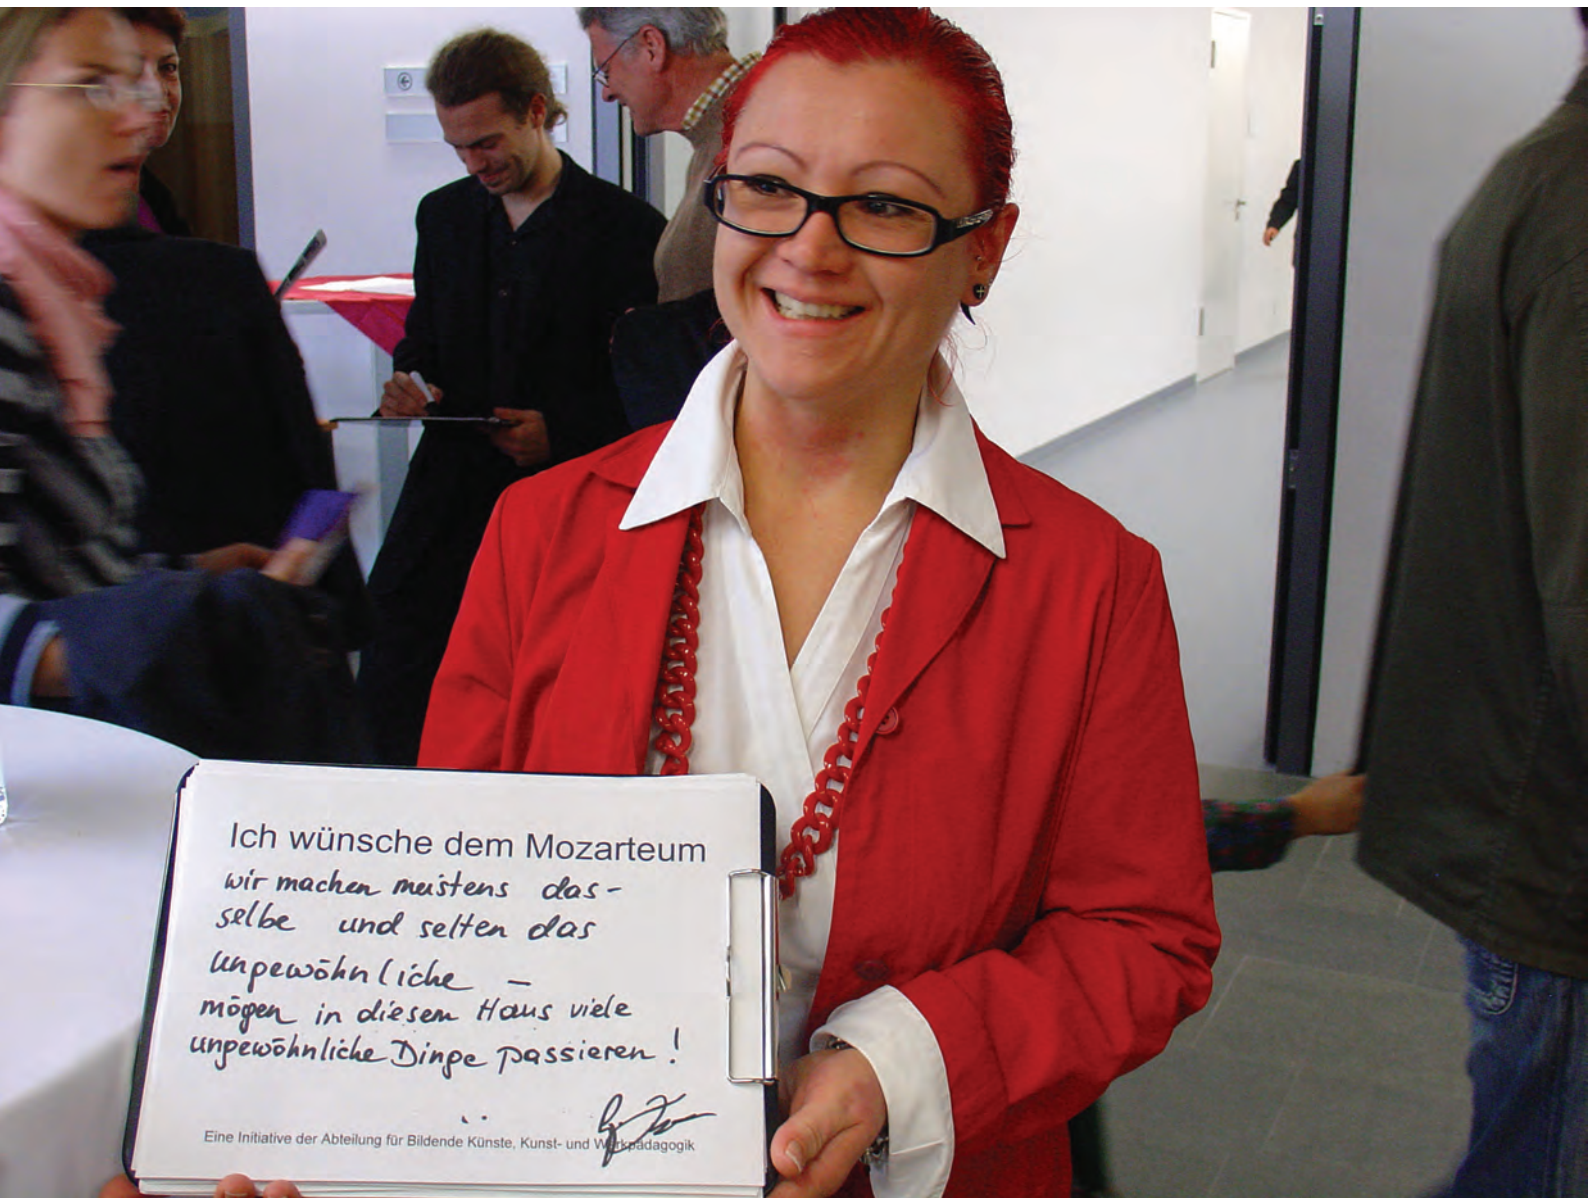 Ich wünsche dem Mozarteum
wir machen meistens das-
selbe und selten das
ungewöhnliche –
mögen in diesem Haus viele
ungewöhnliche Dinge passieren !
Eine Initiative der Abteilung für Bildende Künste, Kunst- und Werkpädagogik